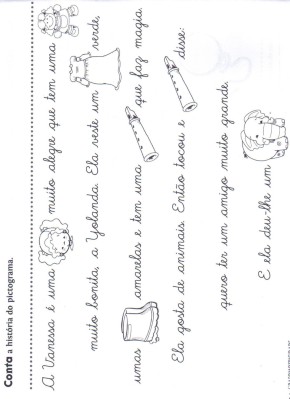 Conta a história do pictograma.
A Vanessa é uma muito alegre que tem uma
muito bonita, a Yolanda. Ela veste um verde,
umas amarelas e tem uma que faz magia.
Ela gosta de animais. Então tocou e disse:
quero ter um amigo muito grande.
E ela deu-lhe um